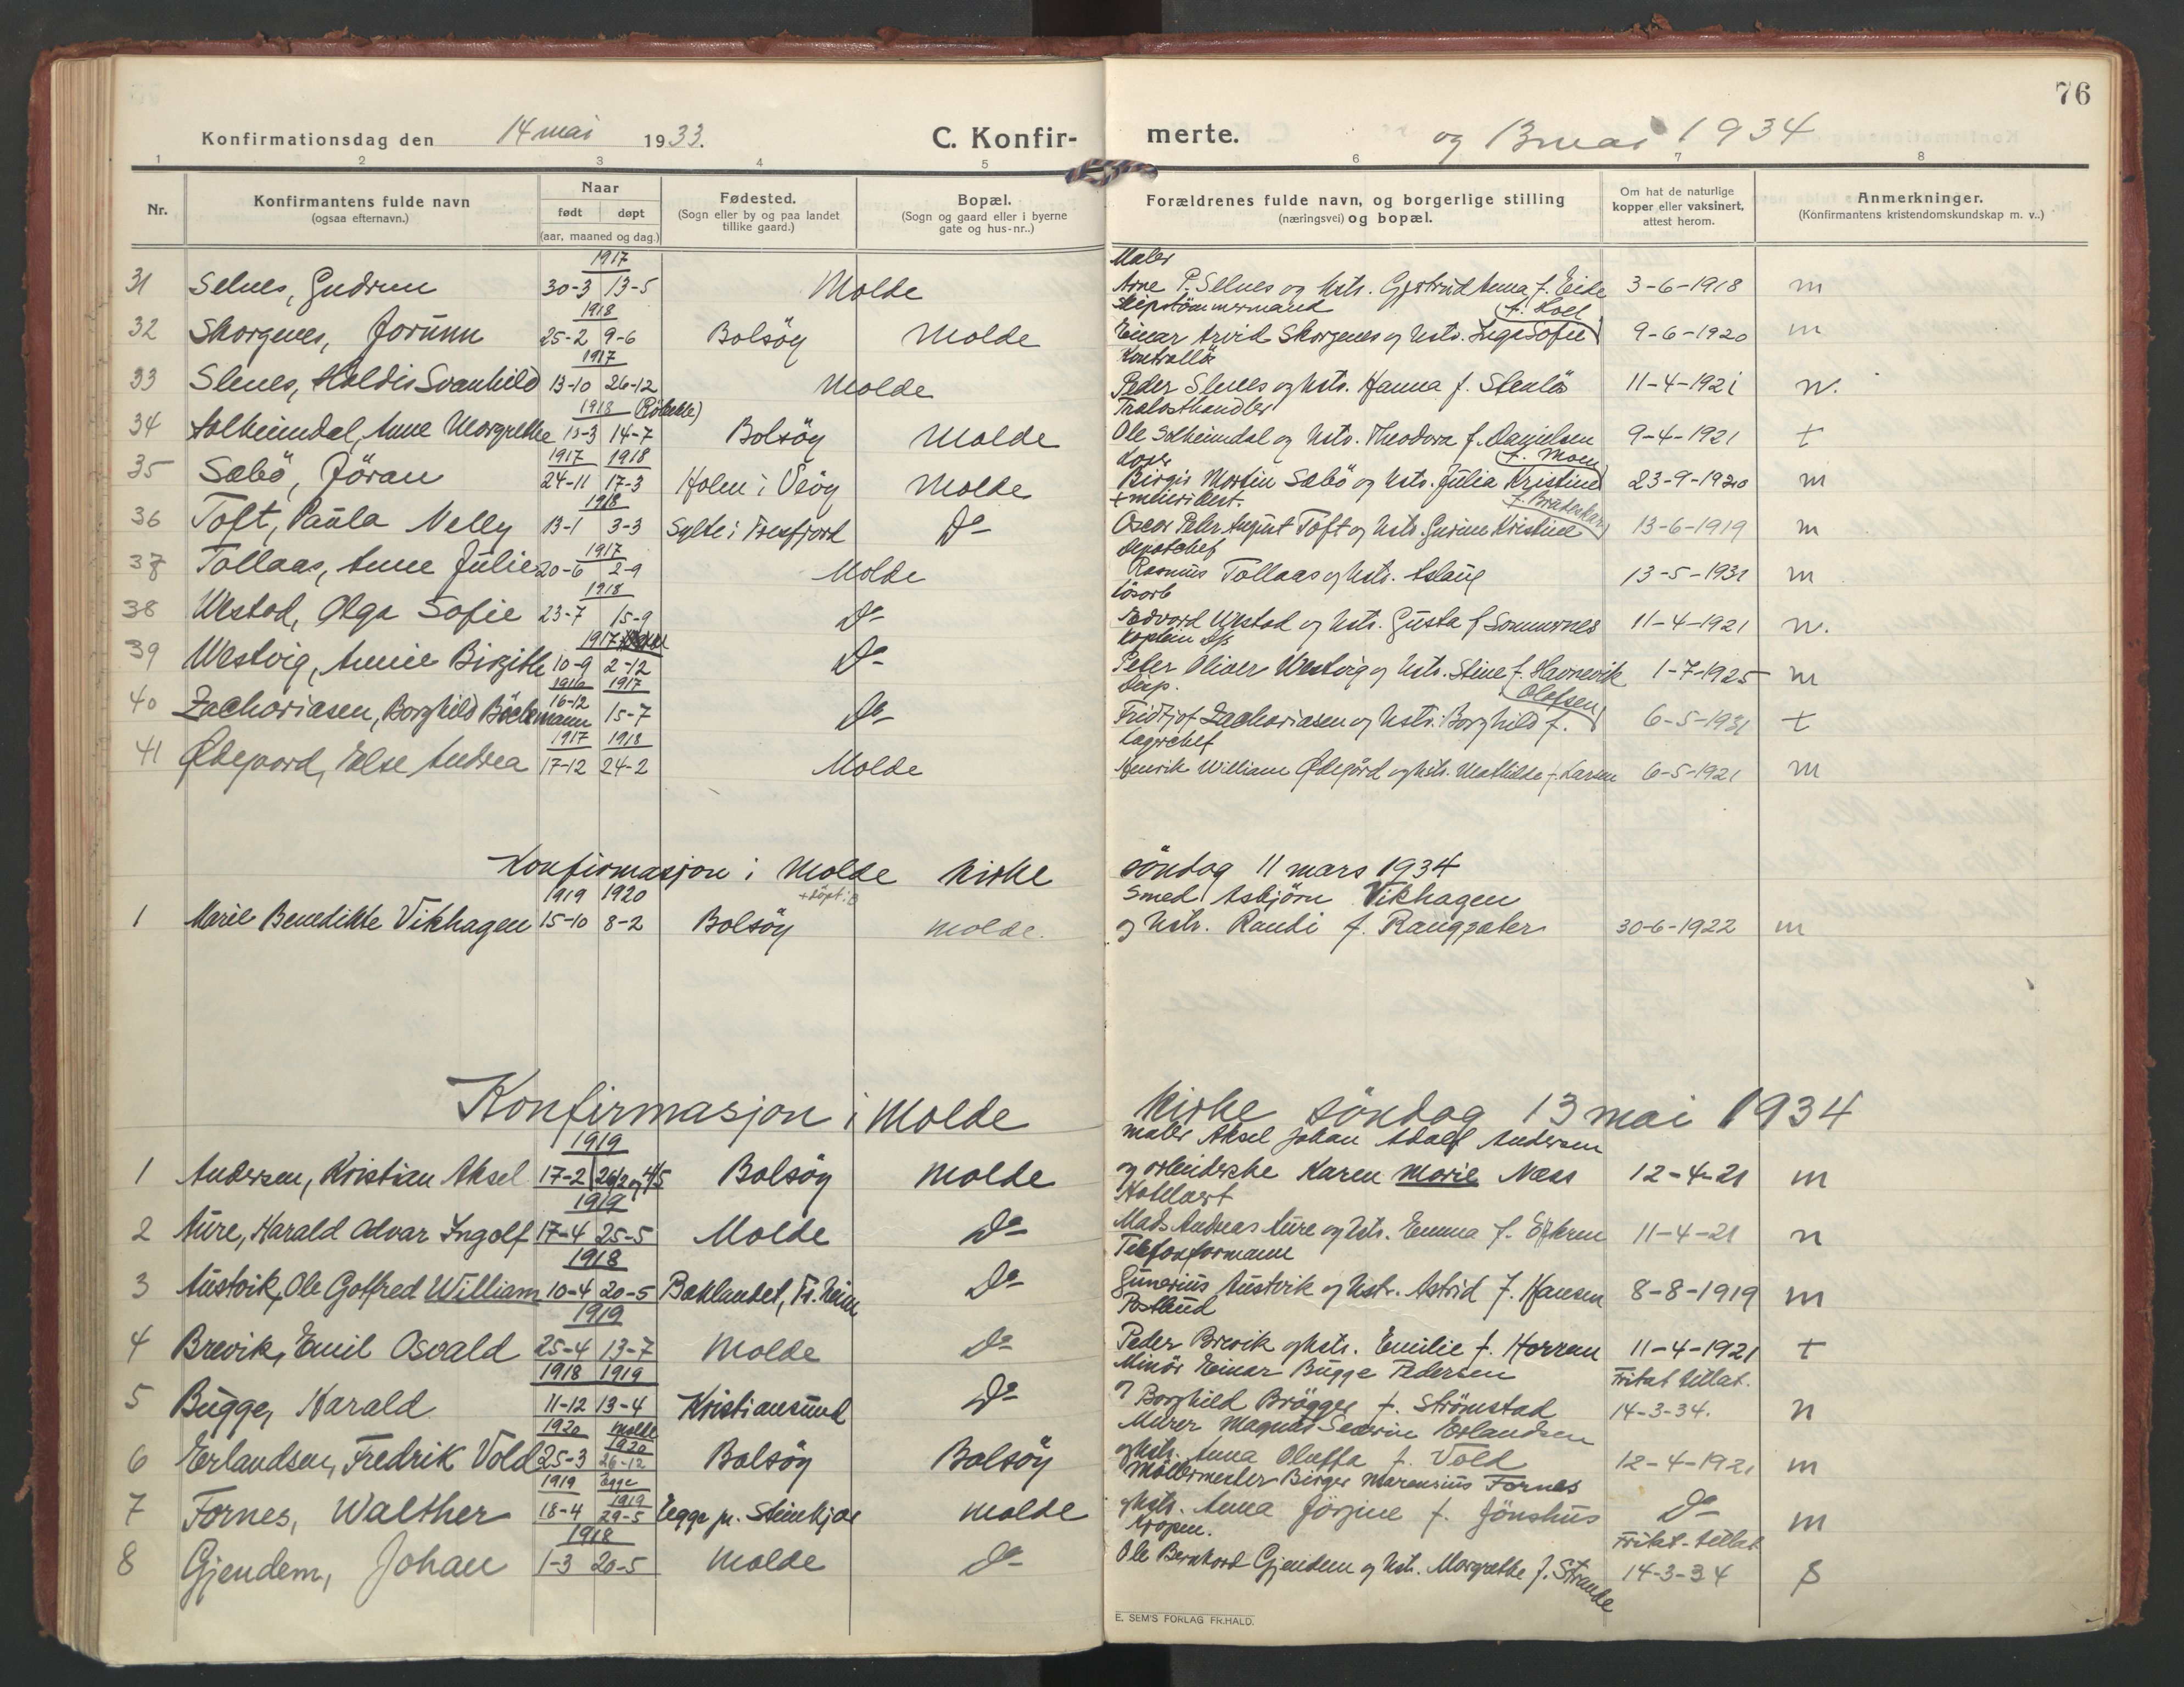 76
Konfirmationsdag den 14 mai 1933. C. Konfir- merte. og 13 mai 1934
1 2 3 4 5 6 7 8
Nr. Konfirmantens fulde navn (ogsaa efternavn.) Naar født døpt (aar, maaned og dag.) Fødested. (Sogn eller by og paa landet tillike gaard.) Bopæl. (Sogn og gaard eller i byerne gate og hus-nr..) Forældrenes fulde navn, og borgerlige stilling (næringsvei) og bopæl. Om hat de naturlige kopper eller vaksinert, attest herom. Anmerkninger. (Konfirmantens kristendomskundskap m. v..)
1917 Maler
31 Selnes, Gudrun 30-3 13-5 Molde Arne P. Selnes og hstr. Gjertrud Anna f. Eide 3-6-1918 m
1918 Skipstömmermand f. Hoel
32 Skorgenes, Jorunn 25-2 9-6 Bolsöy Molde Einar Arvid Skorgenes og hstr. Inga Sofie 9-6-1920 m
1917 Kontrollör
33 Slenes, Haldis Svanhild 13-10 26-12 Molde Peder Slenes og hstr. Hanna f. Stenlös 11-4-1921 n.
1918 Tralasthandler
34 Solheimdal, Anne Margrethe 15-3 14-7 Bolsöy Molde Ole Solheimdal og hstr. Theodora f. Danielsen 9-4-1921 t
1917 1918 f. Moen
35 Sæbö, Jöran 24-11 17-3 Holm i Veöy Molde Birger Martin Sæbö og hstr. Julia Kristine 23-9-1920 m
1918 + meieribest.
36 Toft, Paula Nelly 13-1 3-3 Sylte i Tresfjord Do Oscar Peter August Toft og hstr. Gurine Kristine 13-6-1919 m
1917 Depotchef
37 Tollaas, Anne Julie 20-6 2-9 Molde Rasmus Tollaas og hstr. Aslaug 13-5-1931 m
1918 Lösarb
38 Westad, Olga Sofie 23-7 15-9 Do Edvard Westad og hstr. Gusta f Sommernes 11-4-1921 n.
1917 Kaptein D/S
39 Westvig, Annie Birgithe 10-9 2-12 Do Peter Oliver Westvig og hstr. Stine f. Havnevik 1-7-1925 m
1916 1917 Eksp. Olafsen
40 Zachariasen, Borghild Böckmann 16-12 15-7 Do Fridtjof Zachariasen og hstr. Borghild f. 6-5-1931 t
1917 1918 Lagerchef
41 Ødegaard, Else Andrea 17-12 24-2 Molde Henrik William Ødegård og hstr. Mathilde f. Larsen 6-5-1921 m
Konfirmasjon i Molde kirke söndag 11 mars 1934
1919 1920 Smed Asbjörn Vikhagen
1 Marie Benedikte Vikhagen 15-10 8-2 Bolsöy Molde. og hstr. Randi f. 30-6-1922 m
Konfirmasjon i Molde kirke söndag 13 mai 1934
1919 maler Aksel Johan Adolf Andersen
1 Andersen, Kristian Aksel 17-2 Bolsöy Molde og arbeiderske Karen Marie Næss 12-4-21 m
1919
2 Aure, Harald Alvar Ingolf 17-4 25-5 Molde Do Mads Andreas Aure og hstr. Emma f. 11-4-21 n
1918 Telefonformann
3 Austvik, Ole Gotfred William 10-4 20-5 Baklandet, Tr.heim Do Gunerius Austvik og hstr. Astrid f. Hansen 8-8-1919 m
1919 Postbud
4 Brevik, Emil Osvald 25-4 13-7 Molde Do Peder Brevik og hstr. Emilie f. Horrem 11-4-1921 t
1918 1919 Minör Einar Bugge Pedersen Fritat tillat.
5 Bugge, Harald 11-12 13-4 Kristiansund Do og Borghild Brögger f. Strömstad 14-3-34. n
1920 Molde 1920 Murer Magnus Severin Erlandsen
6 Erlandsen, Fredrik Vold 25-3 26-12 Bolsöy Bolsöy og hstr. Anna Oluffa f. Vold 12-4-1921 m
1919 Egge 1919 Möllermester Birger Marensius Fornes
7 Fornes, Walther 18-4 29-5 Egge pr. Steinkjær Molde og hstr. Anna Jörgine f. Jönshus Do m
1918 Fritat-tillat
8 Gjendem, Johan 1-3 20-5 Molde Do Ole Bernhard Gjendem og hstr. Margrethe f. Strande 14-3-34
E. SEM'S FORLAG FR.HALD.